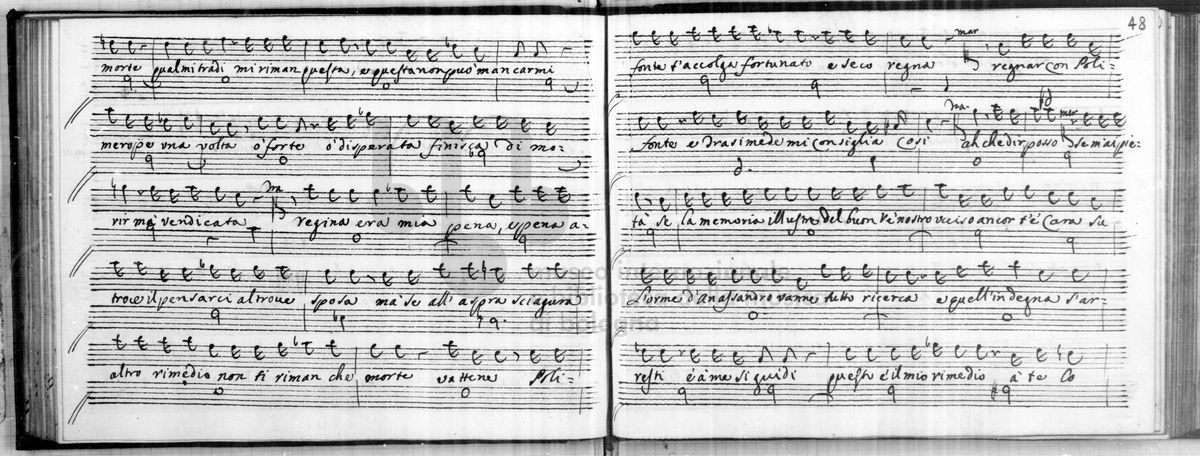 morte qual mi tradì mi riman questa, e questa non può mancarmi
merope una volta ò forte ò disperata finisca di mo-
rir ma vendicata regina era mia pena, e pena a-
troce il pensarci altrove sposa ma se all'aspra sciagura
altro rimedio non ti riman che morte vattene Poli-
48
mar
fonte t'accolga fortunato e seco regna regnar con Poli-
fonte e Drasimede mi consiglia così ah che dir posso se mai pie-
tà se la memoria illustre del buon Rè nostro ucciso ancor t'è Cara su
L'orme d'Anassandro vanne tutto ricerca e quell'indegna s'ar-
resti e à me si guidi questo è il mio rimedio à te Co
di bologna